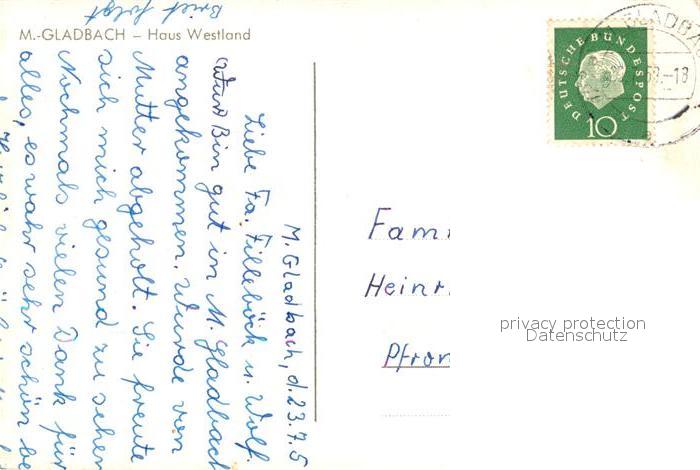 Brief folgt
M.-GLADBACH – Haus Westland
M. Gladbach, d. 23.7.5
Liebe Fa. Filleböck u. Wolf.
Bin gut in M. Gladbach
angekommen. Wurde von
Mutter abgeholt. Sie freute
sich mich gesund zu sehen
Nochmals vielen Dank für
alles, es wahr sehr schön be
GLADBA
59.-18
DEUTSCHE BUNDESPOST
10
Fam
Heinr.
Pfron
privacy protection
Datenschutz